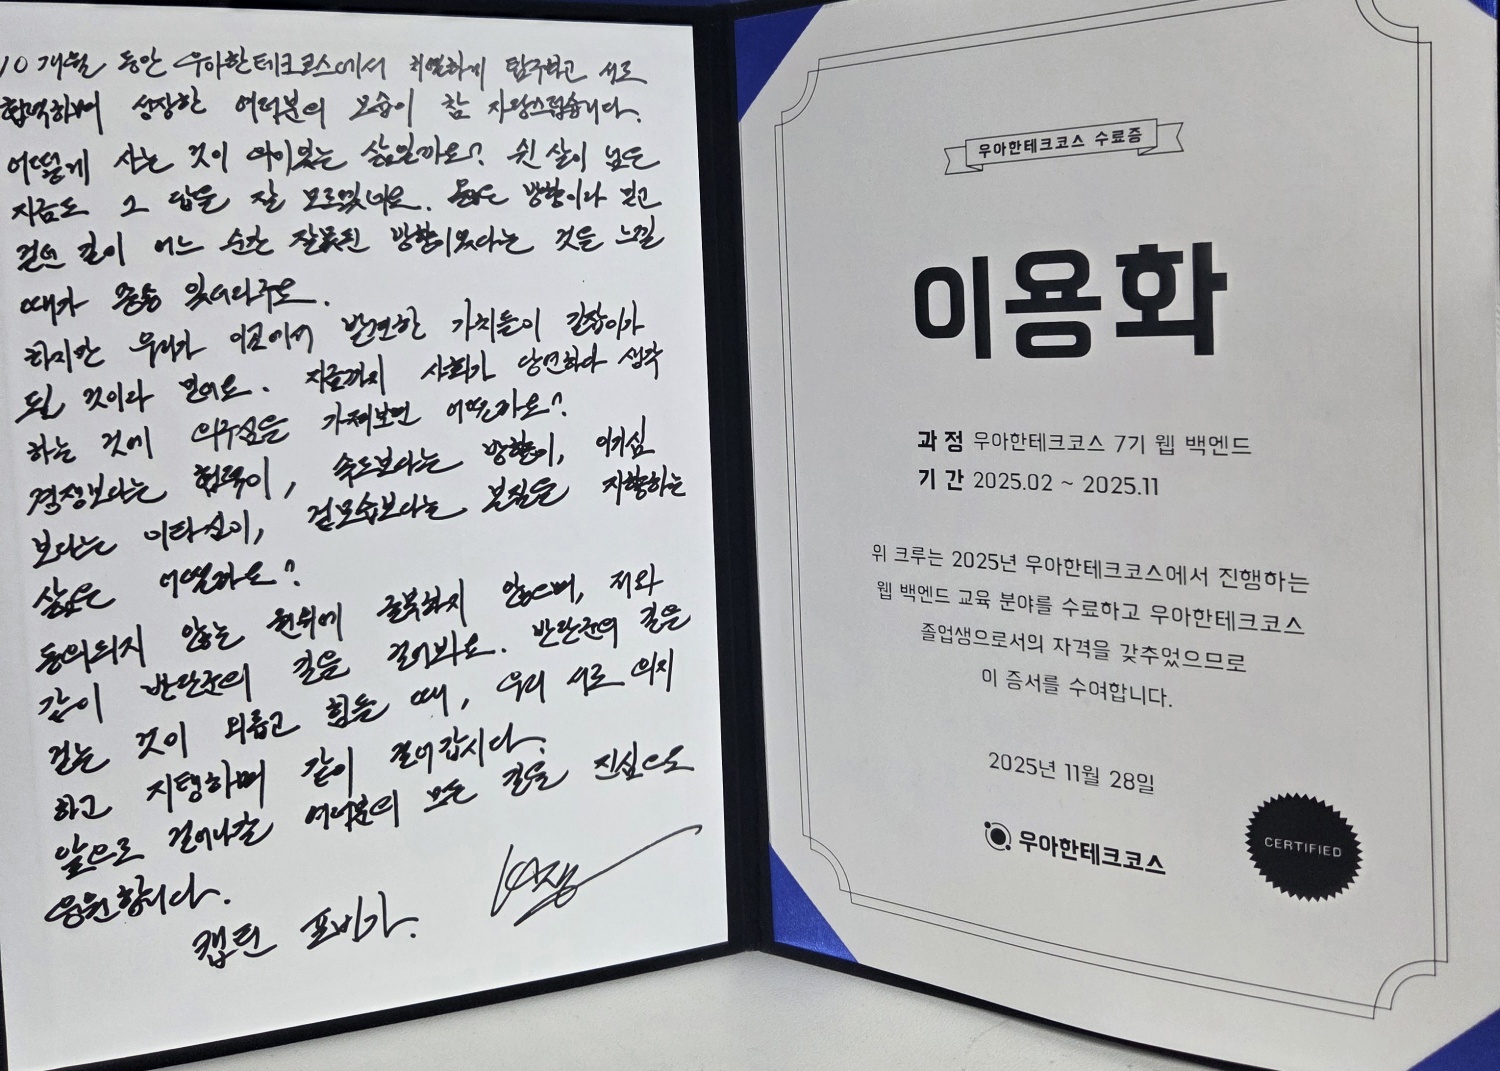 10개월 동안 우아한테크코스에서 치열하게 탐구하고 서로
협력하며 성장한 여러분의 모습이 참 자랑스럽습니다.
어떻게 사는 것이 의미있는 삶일까요? 쉰 살이 넘은
지금도 그 답을 잘 모르겠네요. 옳은 방향이라 믿고
걸은 길이 어느 순간 잘못된 방향이었다는 것을 느낄
때가 종종 있더라구요.
하지만 우리가 이곳에서 발견한 가치들이 길잡이가
될 것이라 믿어요. 지금까지 사회가 당연하다 생각
하는 것에 의구심을 가져보면 어떨까요?
경쟁보다는 협력이, 속도보다는 방향이, 이기심
보다는 이타심이, 겉모습보다는 본질을 지향하는
삶은 어떨까요?
동의되지 않는 권위에 굴복하지 않으며, 저와
같이 반란군의 길을 걸어봐요. 반란군의 길을
걷는 것이 외롭고 힘들 때, 우리 서로 의지
하고 지탱하며 같이 걸어갑시다.
앞으로 걸어나갈 여러분의 모든 길을 진심으로
응원합니다.
캡틴 포비가.
우아한테크코스 수료증
이용화
과정 우아한테크코스 7기 웹 백엔드
기간 2025.02 ~ 2025.11
위 크루는 2025년 우아한테크코스에서 진행하는
웹 백엔드 교육 분야를 수료하고 우아한테크코스
졸업생으로서의 자격을 갖추었으므로
이 증서를 수여합니다.
2025년 11월 28일
우아한테크코스
CERTIFIED